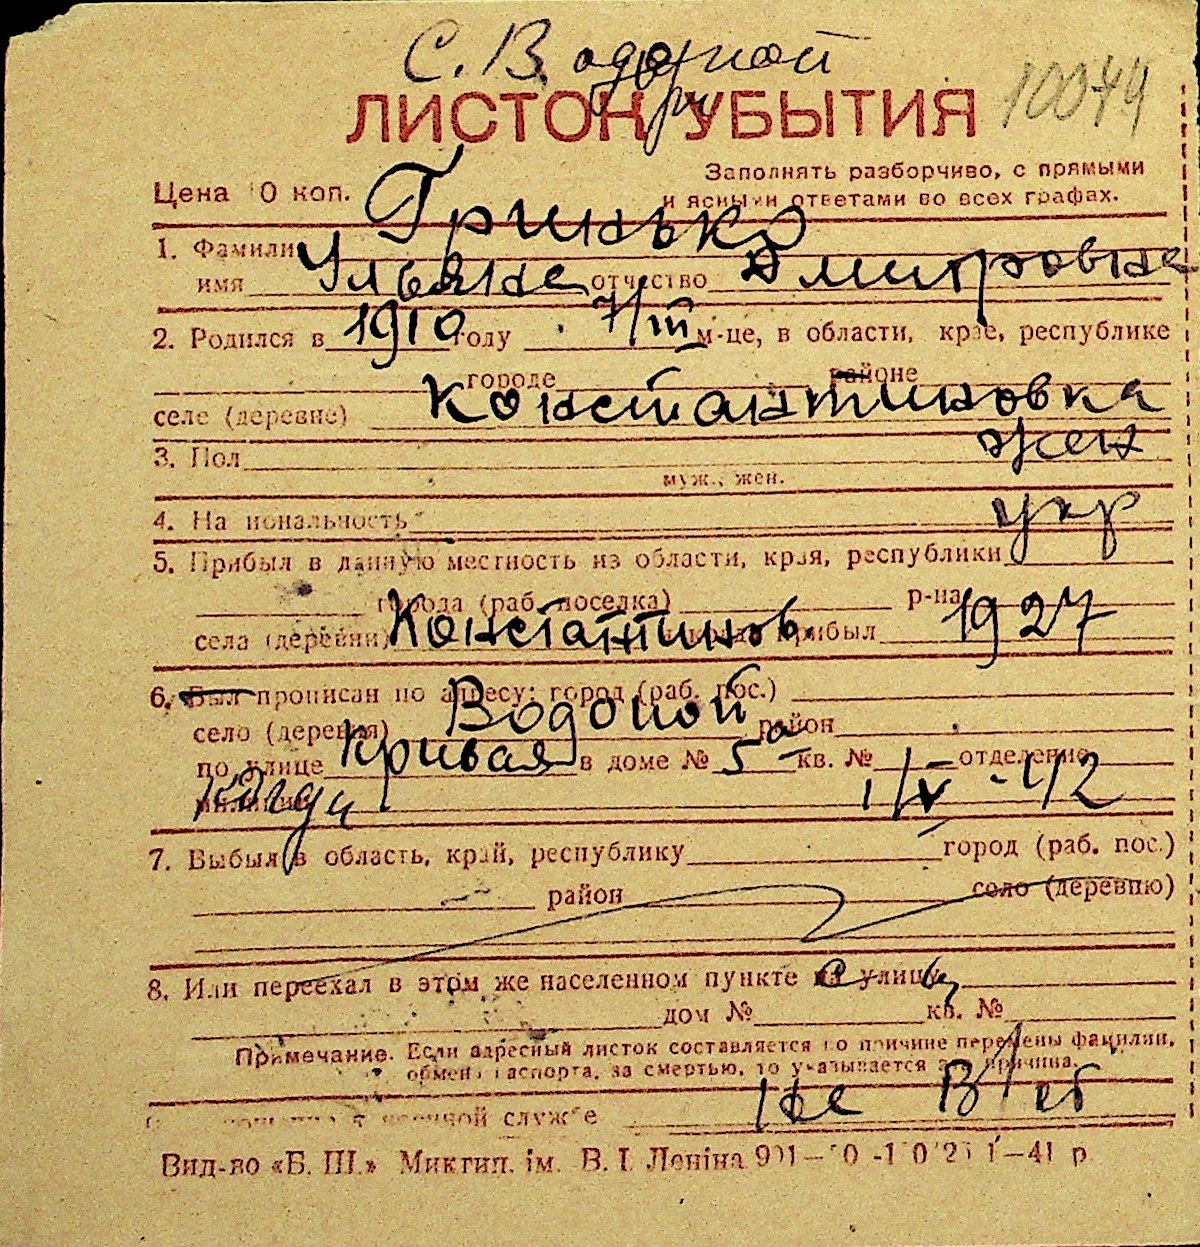 С. Водопой
10074
ЛИСТОК УБЫТИЯ
Заполнять разборчиво, с прямыми
Цена 10 коп.
и ясными ответами во всех графах.
Гринько
1. Фамилия
имя Ульяна отчество Дмитровна
2. Родился в 1910 году 7/III м-це, в области, крае, республике
городе районе
селе (деревне) Константиновка
3. Пол жен
муж., жен.
4. Национальность укр
5. Прибыл в данную местность из области, края, республики
города (раб. поселка) р-на
села (деревни) Константинов. когда прибыл 1927
6. Был прописан по адресу: город (раб. пос.)
село (деревня) Водопой район
по улице Кривая в доме № 5а кв. № отделение
милиции когда 1/V-42
7. Выбыл в область, край, республику город (раб. пос.)
район село (деревню)
8. Или переехал в этом же населенном пункте на улицу
дом № кв. №
Примечание. Если адресный листок составляется по причине перемены фамилии,
обмена паспорта, за смертью, то указывается эта причина.
военной службе не в/об
Вид-во «Б. Ш.» Миктип. ім. В. І. Леніна 41 р